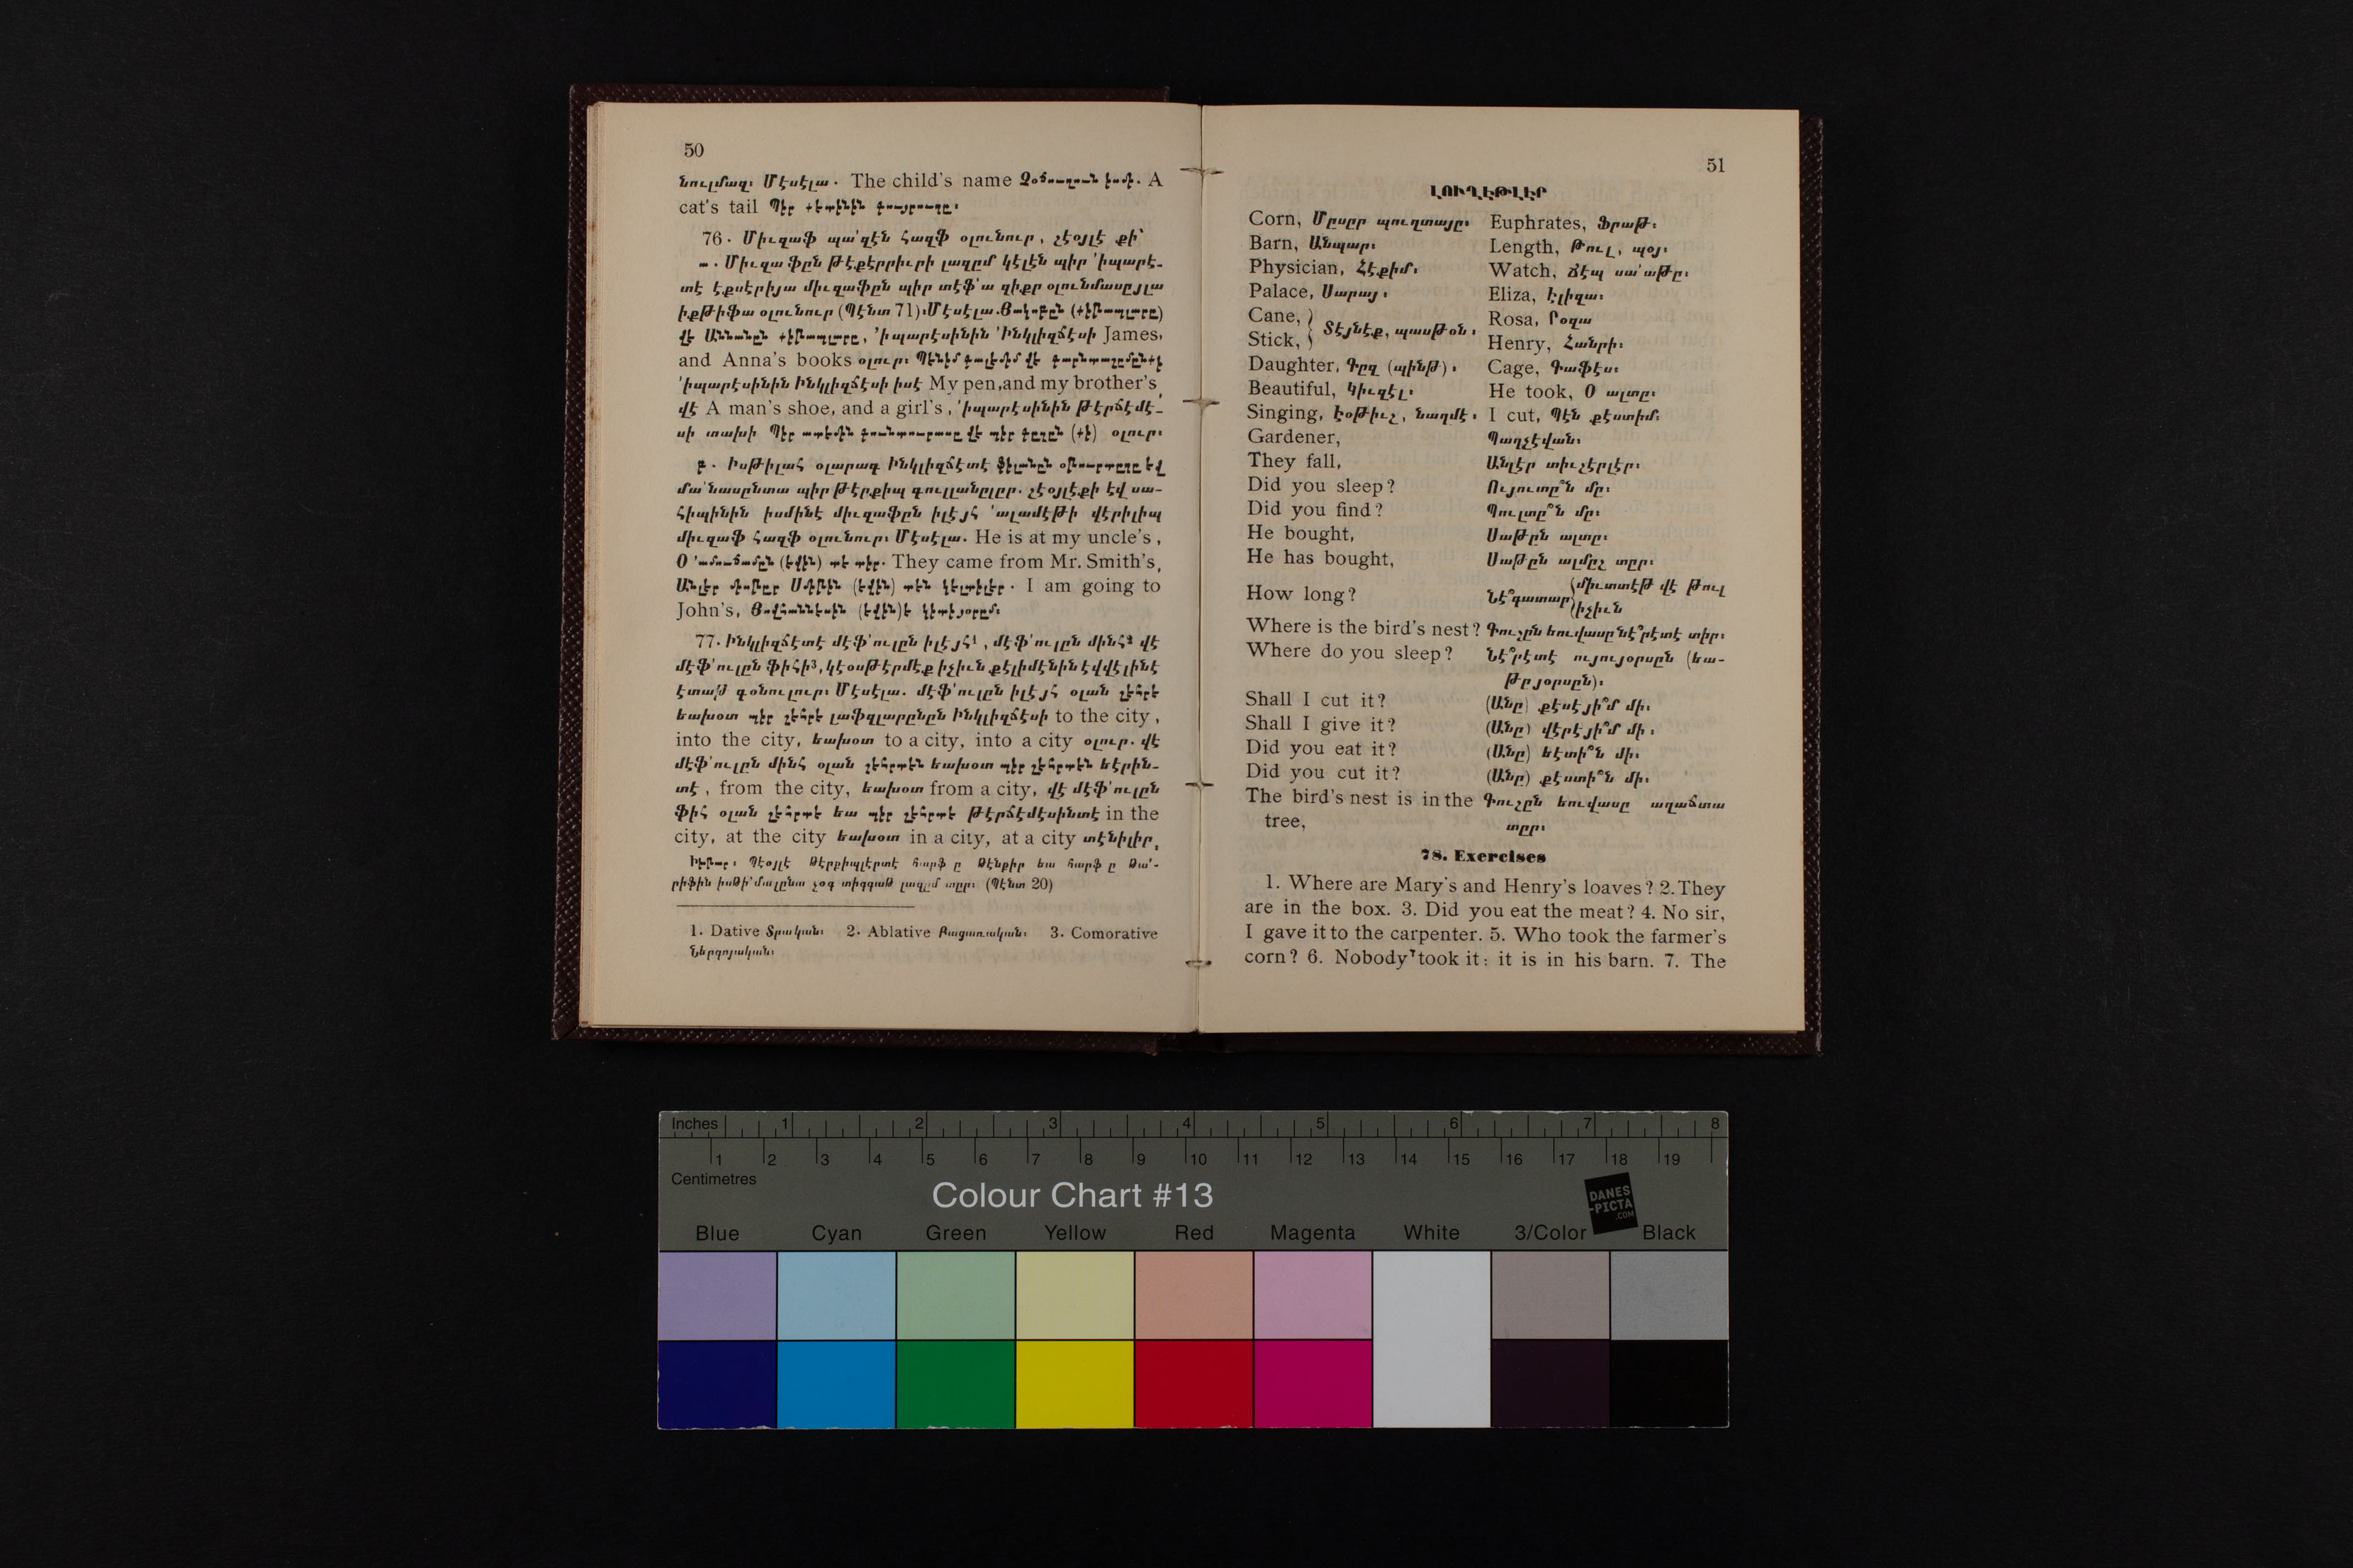 50
նուլմազ։ Մէսէլա. The child's name Չօճուղուն իսմի. A
cat's tail Պիր քետինին գույրուղը։
76. Միւզաֆ պա՛զէն հազֆ օլունուր, չէօյլէ քի՝
ա. Միւզաֆըն թէքէրրիւրի լազըմ կէլէն պիր ՚իպարէ-
տէ էքսէրիյա միւզաֆըն պիր տէֆ՚ա զիքր օլունմասըյլա
իքթիֆա օլունուր (Պէնտ 71)։ Մէսէլա. Յակոբըն (քիթապլարը)
վե Աննանըն քիթապլարը, ՚իպարէսինին Ինկլիզճէսի James,
and Anna's books օլուր։ Պենիմ գալեմիմ վե գարնտաշըմընքի
՚իպարէսինին Ինկլիզճէսի իսէ My pen,and my brother's
վէ A man's shoe, and a girl's, ՚իպարէսինին թէրճէմէ-
սի տախի Պիր ատեմին գունտուրասը վե պիր գըզըն (քի) օլուր։
բ. Իսթիլահ օլարագ Ինկլիզճէտէ ֆիլանըն օթուրտըղը եվ
մա՛նասընտա պիր թէրքիպ գուլլանըլըր. չէօյլէքի էվ սա-
հիպինին իսմինէ միւզաֆըն իլէյհ ՚ալամէթի վէրիլիպ
միւզաֆ հազֆ օլունուր։ Մէսէլա. He is at my uncle's,
Օ ՚ամուճամըն (եվին) տե տիր. They came from Mr. Smith's,
Անլեր Մոսիօ Սմիթին (եվին) տեն կելտիլեր. I am going to
John's, Յովհաննեսին (եվին)ե կիտիյօրըմ։
77. Ինկլիզճէտէ մէֆ՚ուլըն իլէյհ¹, մէֆ՚ուլըն մինհ² վէ
մէֆ՚ուլըն ֆիհի³, կէօսթէրմէք իչիւն քէլիմէնին էվվէլինէ
էտաթ գօնուլուր։ Մէսէլա. մէֆ՚ուլըն իլէյհ օլան շեհրե
եախօտ պիր շեհրե լաֆզլարընըն Ինկլիզճէսի to the city,
into the city, եախօտ to a city, into a city օլուր. վէ
մէֆ՚ուլըն մինհ օլան շեհրտեն եախօտ պիր շեհրտեն եէրին-
տէ, from the city, եախօտ from a city, վէ մէֆ՚ուլըն
ֆիհ օլան շեհրտե եա պիր շեհրտե թէրճէմէսինտէ in the
city, at the city եախօտ in a city, at a city տէնիլիր,
Իհթար։ Պէօյլէ թէրքիպլէրտէ հարֆ ը թէնքիր եա հարֆ ը թա՛-
րիֆին իսթի՛մալընա չօգ տիգգաթ լազըմ տըր։ (Պէնտ 20)
1. Dative Տրական։ 2. Ablative Բացառական։ 3. Comorative
Ներգոյական։
51
ԼՈՒՂԷԹԼԷՐ
Corn, Մըսըր պուղտայը։ Euphrates, Ֆրաթ։
Barn, Անպար։ Length, Թուլ, պօյ։
Physician, Հէքիմ։ Watch, Ճէպ սա՛աթը։
Palace, Սարայ։ Eliza, Էլիզա։
Cane, Rosa, Րօզա
Stick, Տէյնէք, պասթօն։ Henry, Հանրի։
Daughter, Գըզ (պինթ)։ Cage, Գաֆէս։
Beautiful, Կիւզէլ։ He took, Օ ալտը։
Singing, Էօթիւշ, նաղմէ։ I cut, Պէն քէստիմ։
Gardener, Պաղչէվան։
They fall, Անլէր տիւշէրլէր։
Did you sleep? Ույուտը՞ն մը։
Did you find? Պուլտը՞ն մը։
He bought, Սաթըն ալտը։
He has bought, Սաթըն ալմըշ տըր։
How long? Նէ՞գատար (միւտտէթ վէ թուլ
իչիւն
Where is the bird's nest? Գուշըն եուվասը նէ՞րէտէ տիր։
Where do you sleep? Նէ՞րէտէ ույույօրսըն (եա-
թըյօրսըն)։
Shall I cut it? (Անը) քէսէյի՞մ մի։
Shall I give it? (Անը) վէրէյի՞մ մի։
Did you eat it? (Անը) եէտի՞ն մի։
Did you cut it? (Անը) քէստի՞ն մի։
The bird's nest is in the Գուշըն եուվասը աղաճտա
tree, տըր։
78. Exercises
1. Where are Mary's and Henry's loaves? 2. They
are in the box. 3. Did you eat the meat? 4. No sir,
I gave it to the carpenter. 5. Who took the farmer's
corn? 6. Nobody⁷ took it: it is in his barn. 7. The
Inches 1 2 3 4 5 6 7 8
1 2 3 4 5 6 7 8 9 10 11 12 13 14 15 16 17 18 19
Centimetres
Colour Chart #13
DANES
-PICTA
.COM
Blue Cyan Green Yellow Red Magenta White 3/Color Black